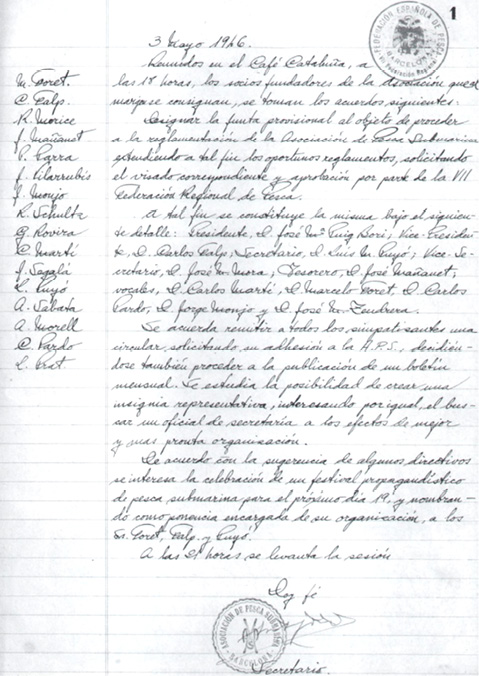 1
ASOCIACIÓN ESPAÑOLA DE PESCA
BARCELONA
3 Mayo 1946.
Reunidos en el Café Cataluña, a
las 18 horas, los socios fundadores de la Asociación que al
margen se consignan, se toman los acuerdos siguientes:
Designar la Junta provisional al objeto de proceder
a la reglamentación de la Asociación de Pesca Submarina
extendiendo a tal fin los oportunos reglamentos, solicitando
el visado correspondiente y aprobación por parte de la VII
Federación Regional de Pesca.
A tal fin se constituye la misma bajo el siguien-
te detalle: Presidente, D. José Mª Puig Bori; Vice-Presiden-
te, D. Carlos Falp; Secretario, D. Luis M. Puyó; Vice-Se-
cretario, D. José M. Mora; Tesorero, D. José Mañanet,
vocales, D. Carlos Martí, D. Marcelo Foret, D. Carlos
Pardo, D. Jorge Monjo y D. José M. Fendrera.
Se acuerda remitir a todos los simpatisantes una
circular, solicitando su adhesión a la A.P.S., decidién-
dose también proceder a la publicación de un boletín
mensual. Se estudia la posibilidad de crear una
insignia representativa, interesando por igual, el bus-
car un oficial de secretaría a los efectos de mejor
y mas pronta organisación.
De acuerdo con la sugerencia de algunos directivos
se interesa la celebración de un festival propagandístico
de pesca submarina para el próximo dia 19, y nombran-
do como ponencia encargada de su organización, a los
Ss. Foret, Falp y Puyó.
A las 21 horas se levanta la sesión
Doy fé
ASOCIACIÓN DE PESCA SUBMARINA
BARCELONA
Secretario.
M. Foret
C. Falp
R. Morice
J. Mañanet
P. Parra
J. Alarrubis
J. Monjo
R. Schultz
G. Rovira
C. Martí
J. Segalá
L. Puyó
A. Sabata
A. Morell
C. Pardo
L. Prat